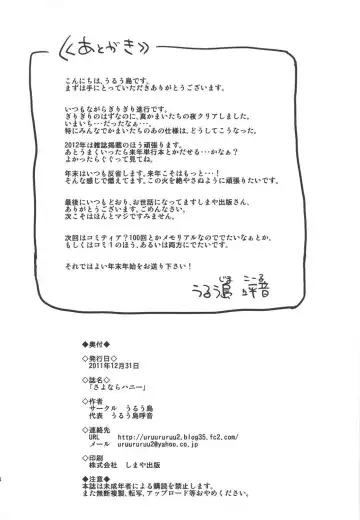 ≪あとがき≫
こんにちは、うるう島です。
まずは手にとっていただきありがとうございます。
いつもながらぎりぎり進行です。
ぎりぎりのはずなのに、真かまいたちの夜クリアしました。
いまいち…だったなぁ…。
特にみんなでかまいたちのあの仕様は、どうしてこうなった。
2012年は雑誌掲載のほう頑張ります。
あとうまくいったら来年単行本とかだせる…かなぁ?
よかったらぐぐって見てね。
年末はいつも反省します。来年こそはもっと…!
そんな感じで燃えてます。この火を絶やさぬように頑張りたいです。
最後にいつもどおり、お世話になってますしまや出版さん、
ありがとうございます。ごめんなさい。
次こそはほんとマジですみません。
次回はコミティア?100回とかメモリアルなのででたいなぁとか。
もしくはコミ1のほう、あるいは両方にでたいです。
それではよい年末年始をお送り下さい!
じま こーる
うるう島 呼音
◆奥付◆
◇発行日◇
2011年12月31日
◇誌名◇
「さよならハニー」
◇作者
サークル うるう島
代表 うるう島呼音
◇連絡先
URL http://uruururuu2.blog35.fc2.com/
メール uruururuu2@yahoo.co.jp
◇印刷
株式会社 しまや出版
◆注意◆
本誌は未成年者による購読を禁止します。
また無断複製、転写、アップロード等おやめください。